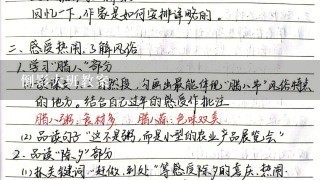 回忆一下,作家是如何安排详略的。
二、感受热闹,了解风俗
1.学习"腊八"部分
自然段,勾画出最能体现"腊八节"风俗特点
的地方。结合自己过年的感受作批注
腊八粥:食材多 腊八蒜:色味双美
(2)品读句子"这不是粥,而是小型的农业产品展览会"
2.品读"除夕"部分
(1)抓关键词"赶做,到处"等感受除夕的喜庆、热闹.
例发大班教案